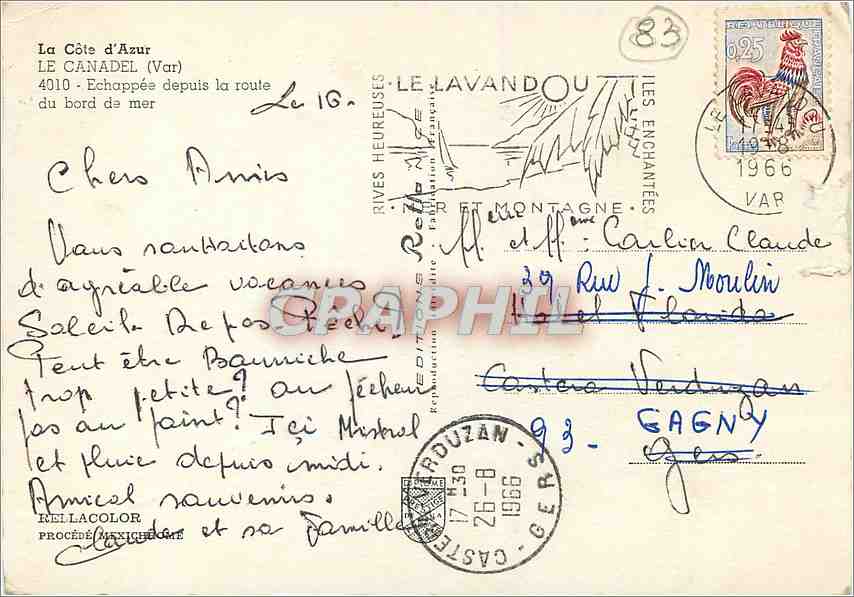 La Côte d'Azur
LE CANADEL (Var)
4010 - Echappée depuis la route
du bord de mer
Le 16-
Chers Amis
Vous souhaitons
d'agréable vacances
Soleil Repos Pêche?
Peut être Bourriche
trop petite? ou pêcheur
pas au point? Içi Mistral
et pluie depuis midi.
Amical souvenirs.
Claude et sa Famille
RELLACOLOR
PROCÉDÉ MEXICHROME
EDITIONS Rella NICE
Reproduction interdite Fabrication Française
83
RIVES HEUREUSES
LE LAVANDOU
ILES ENCHANTÉES
MER ET MONTAGNE
REPUBLIQUE FRANÇAISE
0,25
LE LAVANDOU
1966
VAR
M. et Mme Carlier Claude
39, Rue J. Moulin
Hotel Florida
Castera Verduzan
93- GAGNY
Gers
CASTERA-VERDUZAN - GERS
17H30
26-8
1966
CPAPHIL